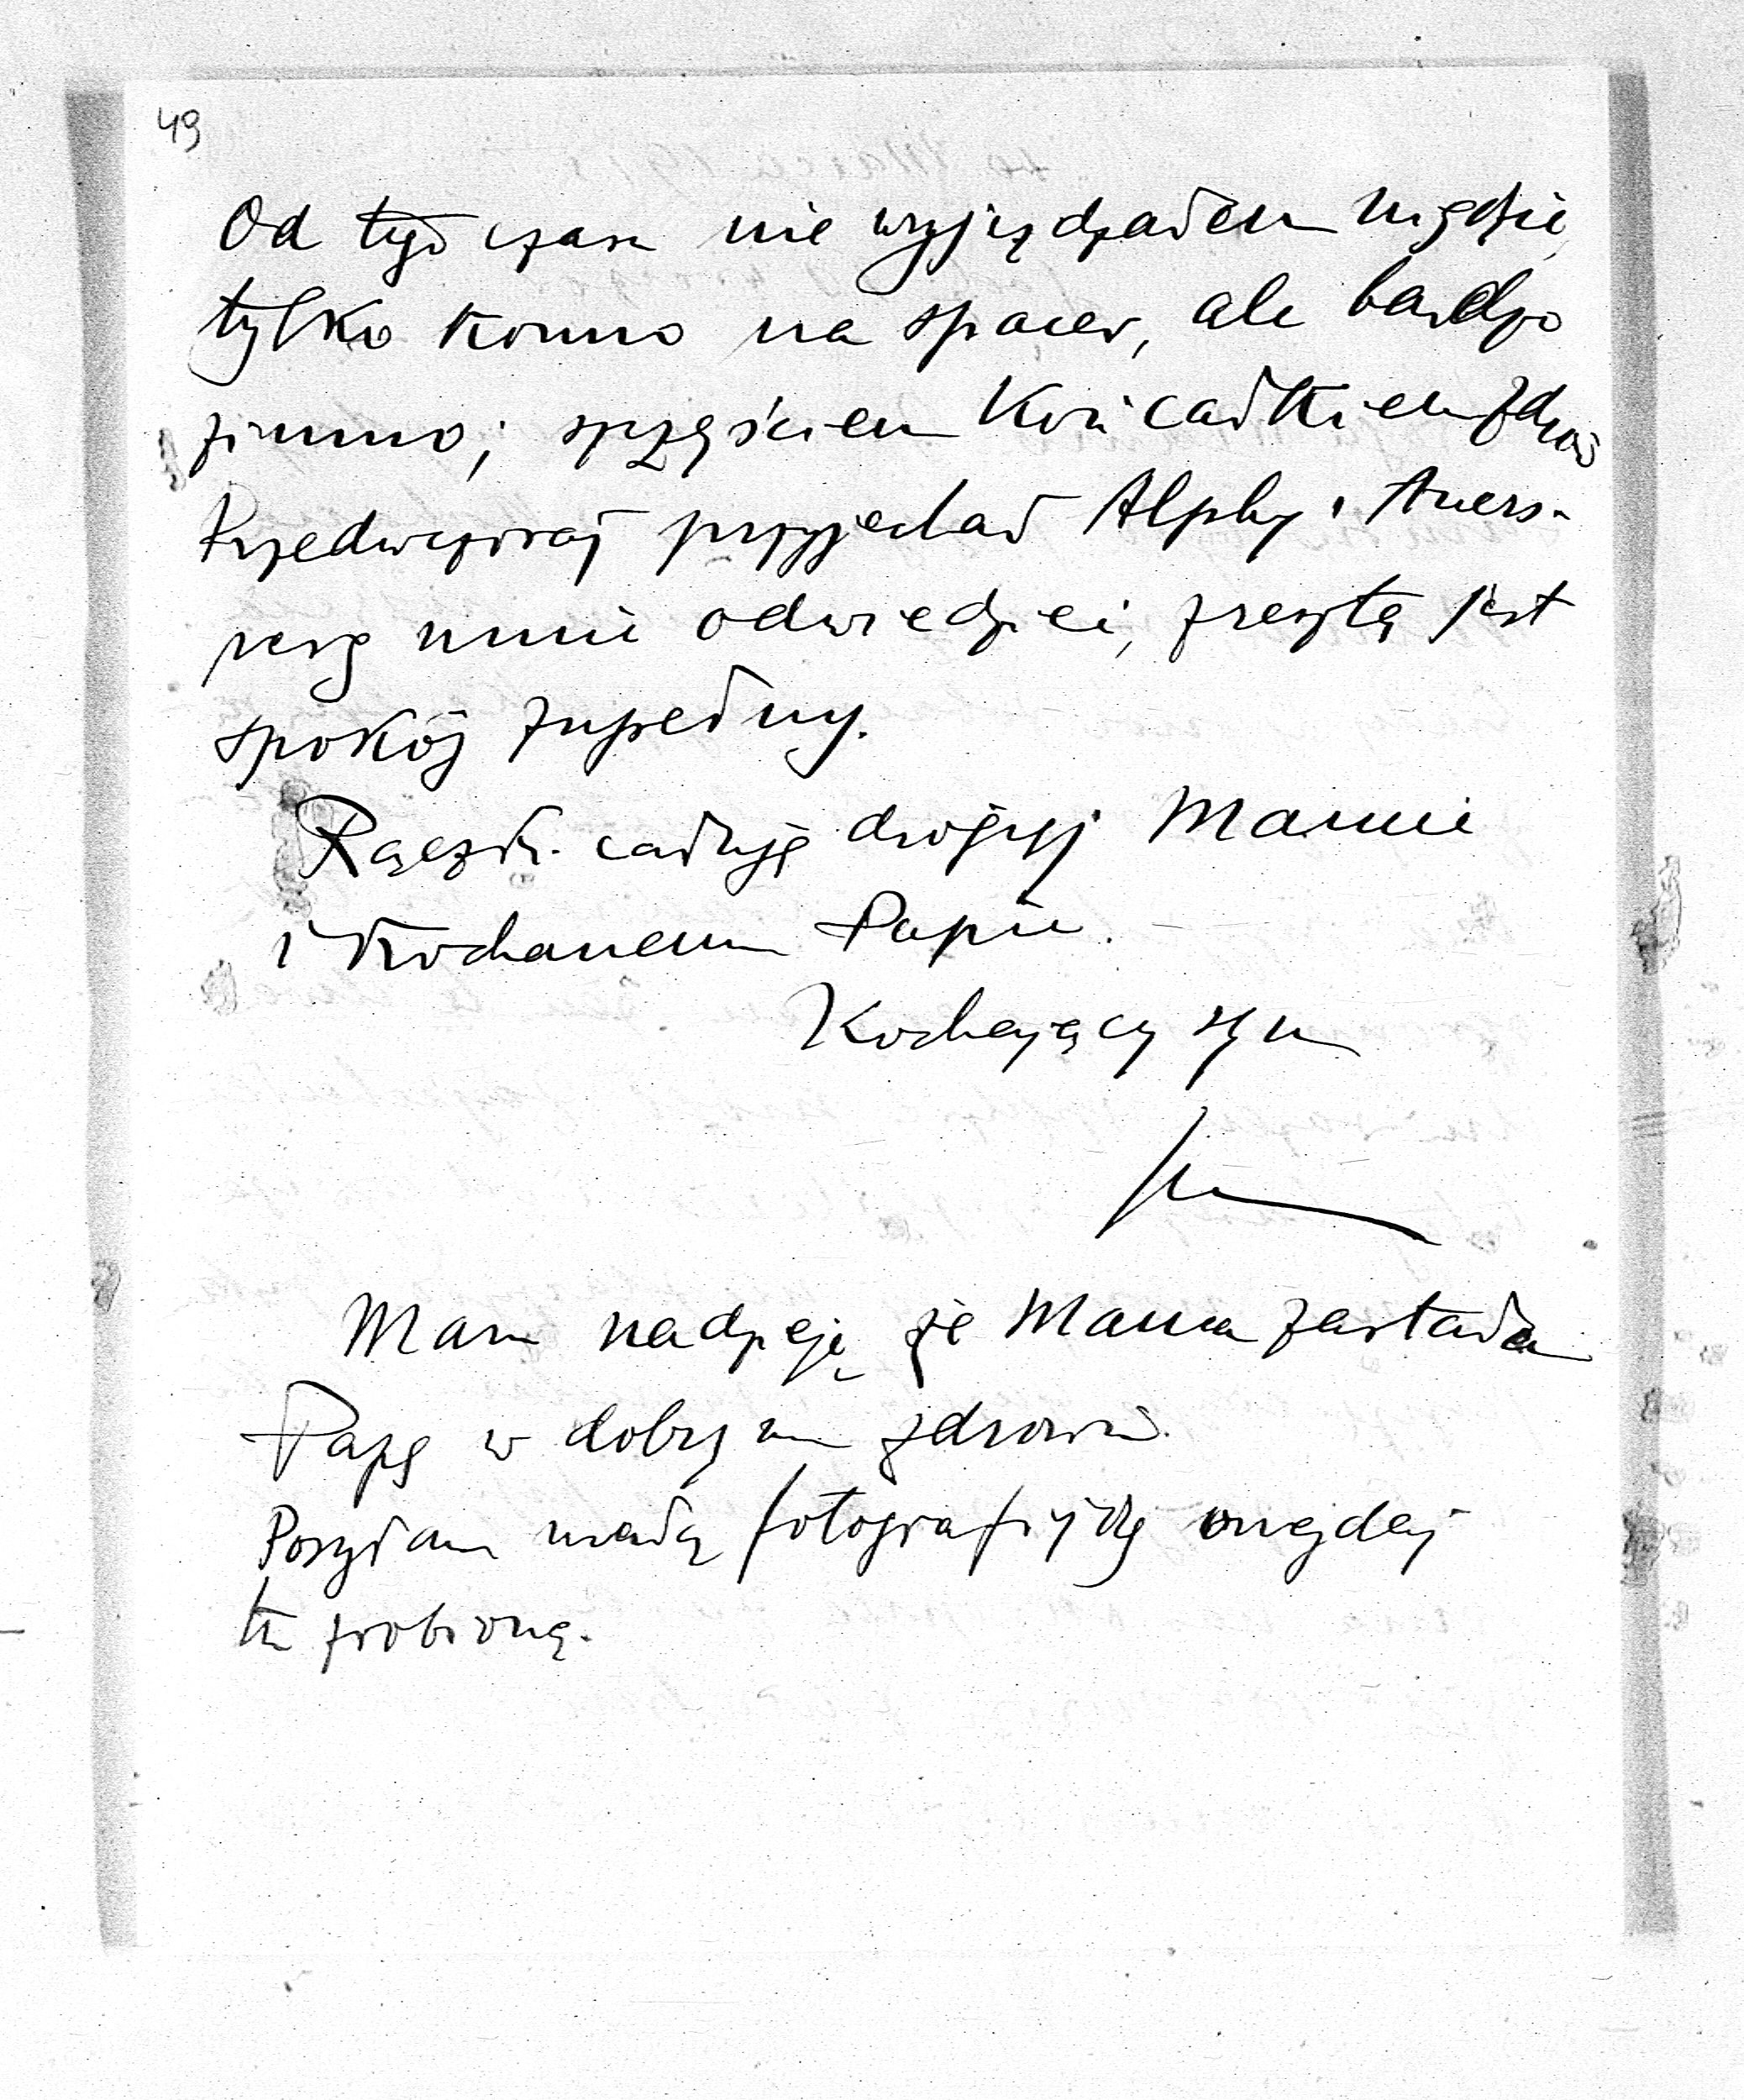 49
Od tego czasu nie wyjeżdżałem nigdzie,
tylko konno na spacer, ale bardzo
zimno; szczęściem koń całkiem zdrów
Przedwczoraj przyjechał Alphy Auers-
perg mnie odwiedzić, zresztą jest
spokój zupełny.
Rączki całuję drogiej Mamie
i Kochanemu Papie.
Kochający syn
Mam nadzieję że Mama zastała
Papę w dobrym zdrowiu.
Posyłam małą fotografijkę onegdaj
tu zrobioną.